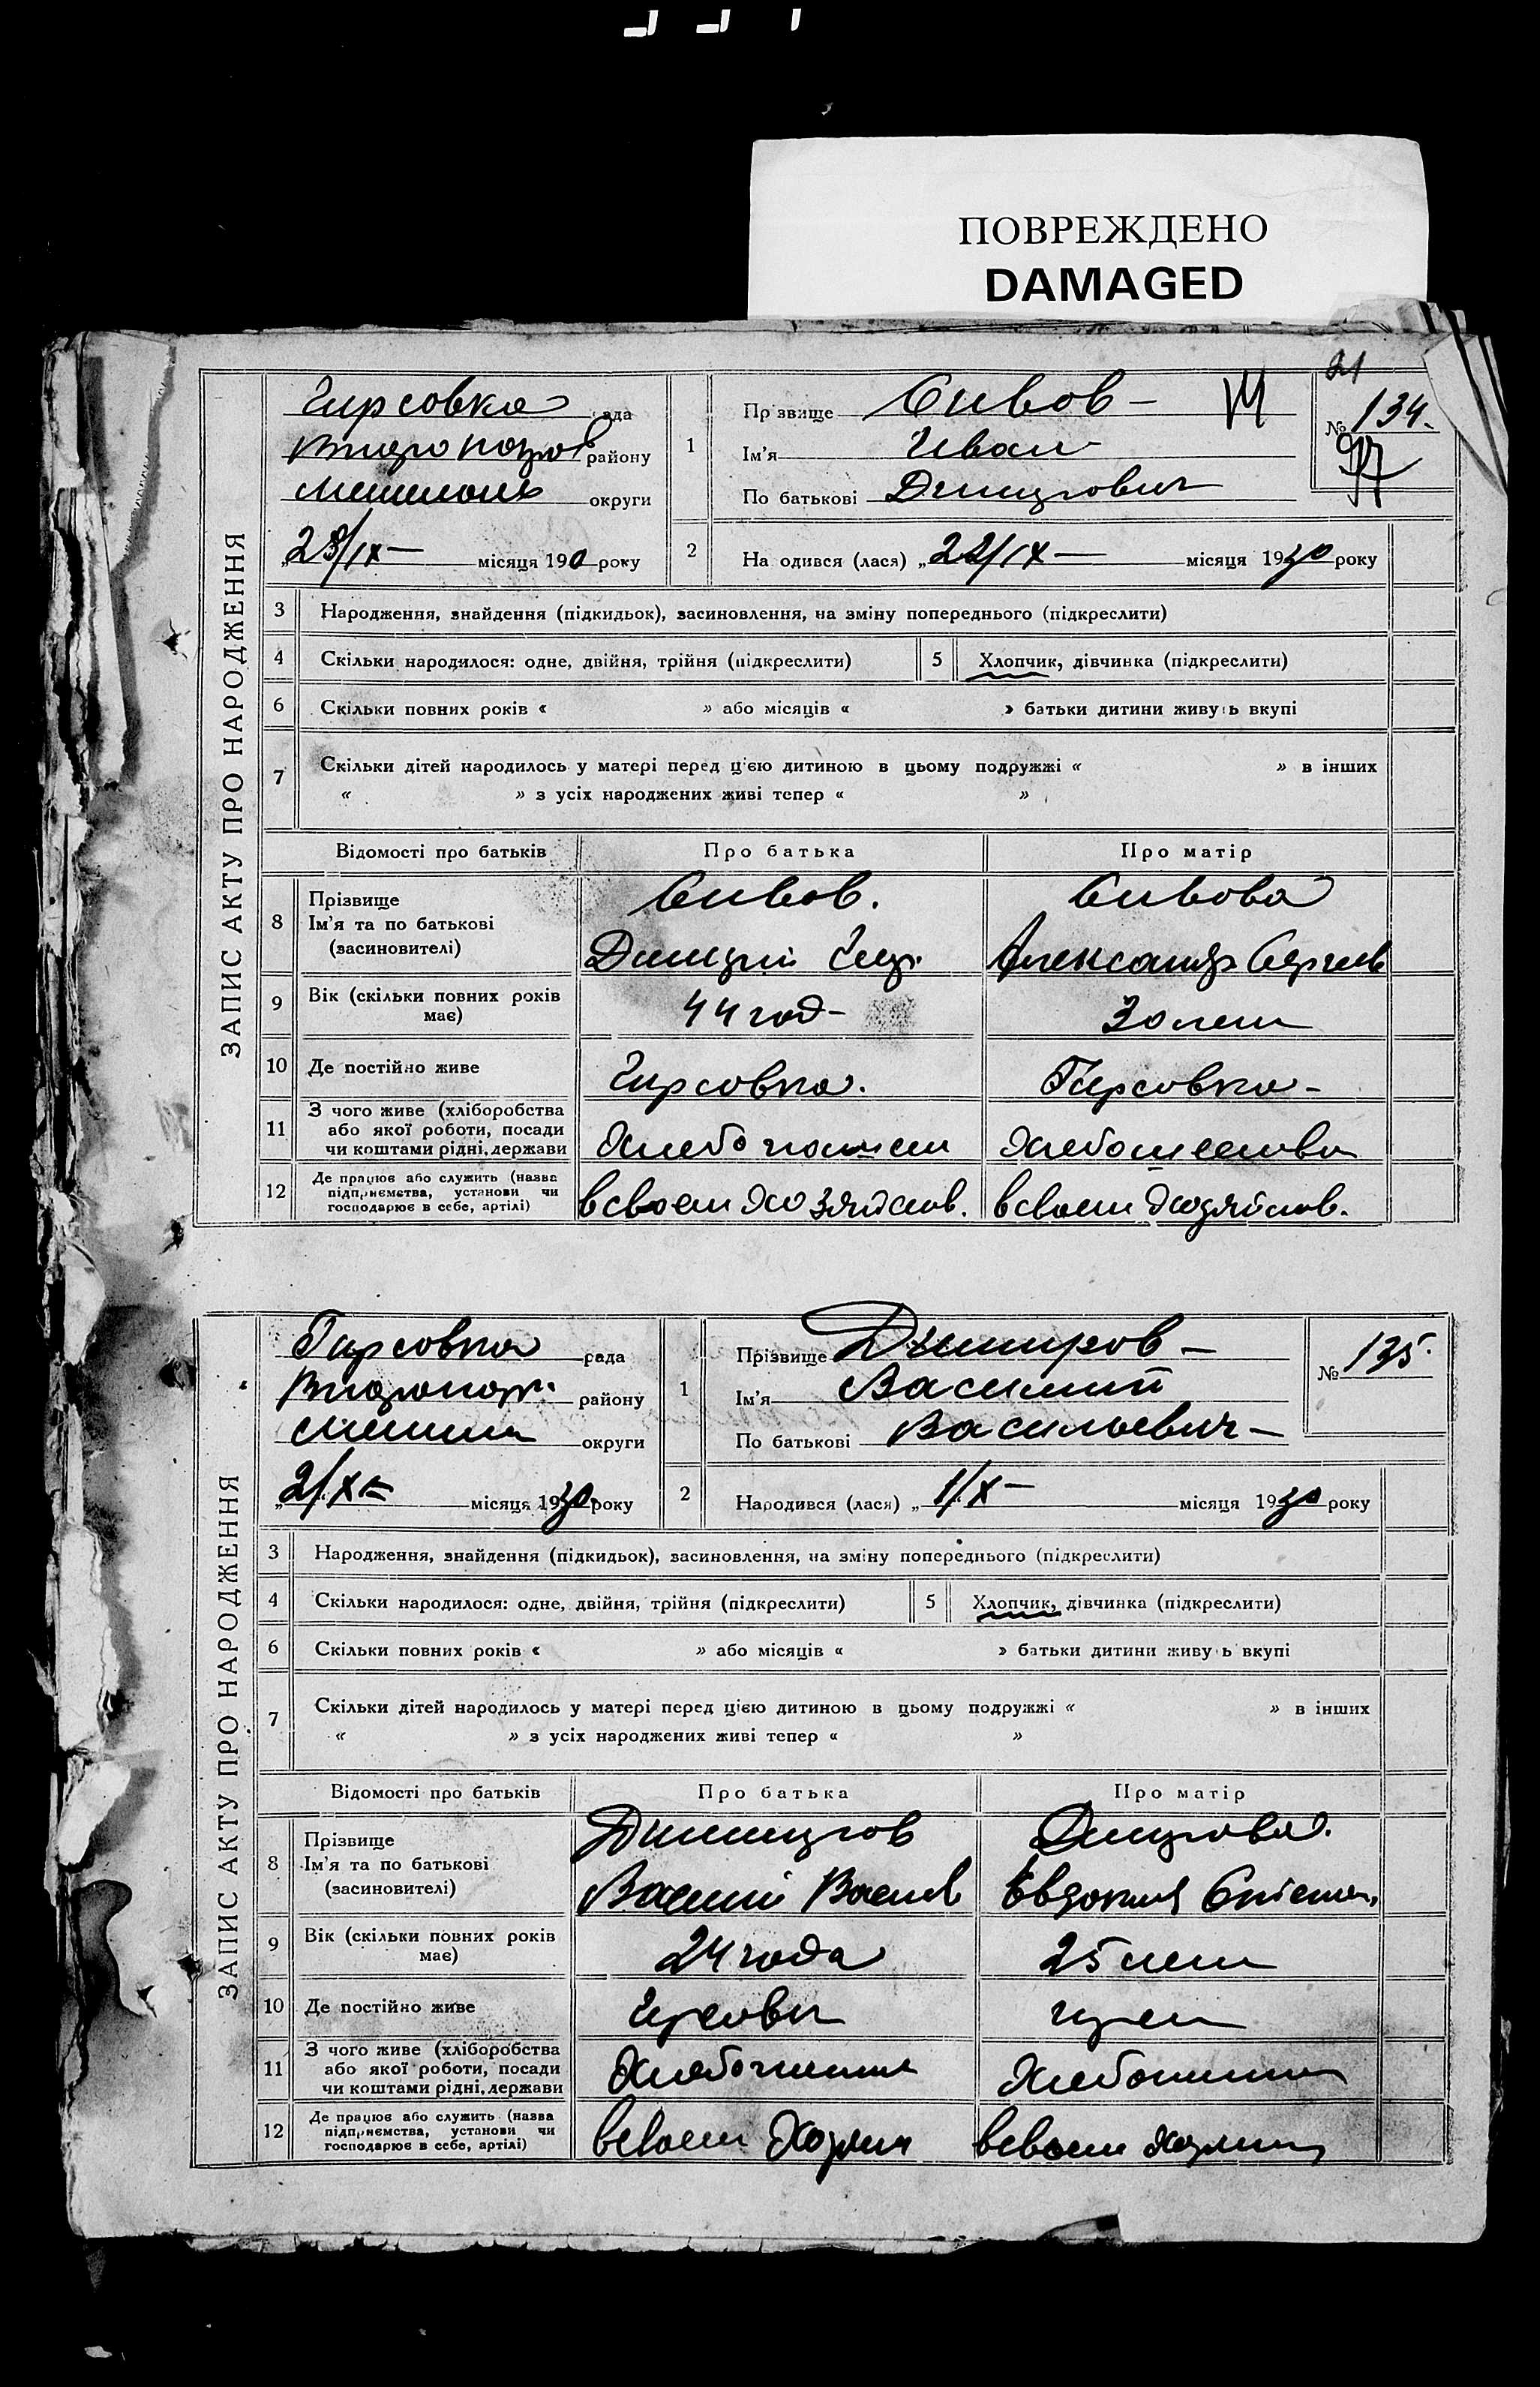 ПОВРЕЖДЕНО
DAMAGED
21
ЗАПИС АКТУ ПРО НАРОДЖЕННЯ
Гирсовка рада
району
округи
"28/IX— місяця 1930 року
1
Прізвище Сивов —
Ім'я Иван
По батькові Дмитрович
№ 134.
2
Народився (лася) „22/IX — місяця 1930 року
3 Народження, знайдення (підкидьок), засиновлення, на зміну попереднього (підкреслити)
4 Скільки народилося: одне, двійня, трійня (підкреслити) 5 Хлопчик, дівчинка (підкреслити)
6 Скільки повних років « » або місяців « » батьки дитини живуть вкупі
7 Скільки дітей народилось у матері перед цією дитиною в цьому подружжі « » в інших
« » з усіх народжених живі тепер « »
Відомості про батьків Про батька Про матір
8 Прізвище
Ім'я та по батькові
(засиновителі)
Сивов.
Дмитрий
Сивова
Александр Сергеев
9 Вік (скільки повних років має) 44 год— 30 лет
10 Де постійно живе Гирсовка. Гирсовка —
11 З чого живе (хліборобства
або якої роботи, посади
чи коштами рідні, держави
12 Де працює або служить (назва
підприємства, установи чи
господарює в себе, артілі)
в своем хозяйств. в своем хозяйств.
ЗАПИС АКТУ ПРО НАРОДЖЕННЯ
Гирсовка рада
району
округи
„2/X— місяця 1930 року
1
Прізвище Дмитров —
Ім'я Василий
По батькові Васильевич —
№ 135.
2
Народився (лася) „1/X — місяця 1930 року
3 Народження, знайдення (підкидьок), засиновлення, на зміну попереднього (підкреслити)
4 Скільки народилося: одне, двійня, трійня (підкреслити) 5 Хлопчик, дівчинка (підкреслити)
6 Скільки повних років « » або місяців « » батьки дитини живуть вкупі
7 Скільки дітей народилось у матері перед цією дитиною в цьому подружжі « » в інших
« » з усіх народжених живі тепер « »
Відомості про батьків Про батька Про матір
8 Прізвище
Ім'я та по батькові
(засиновителі)
Дмитров
Васили Васив
Дмитрова.
Евдокия
9 Вік (скільки повних років має) 24 года 25 лет
10 Де постійно живе
11 З чого живе (хліборобства
або якої роботи, посади
чи коштами рідні, держави
12 Де працює або служить (назва
підприємства, установи чи
господарює в себе, артілі)
в своем в своем